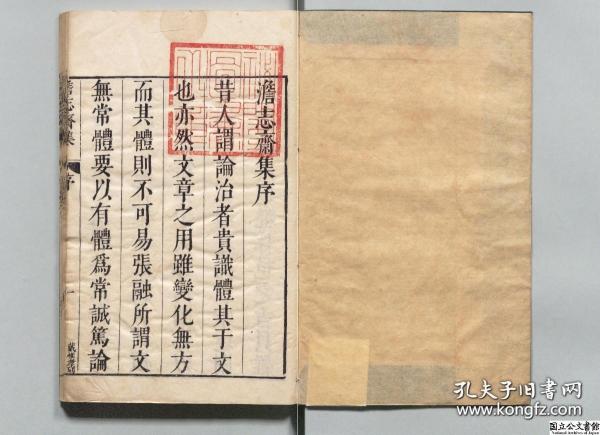 澹志齋集序
昔人謂論治者貴識體其于文
也亦然文章之用雖變化無方
而其體則不可易張融所謂文
無常體要以有體爲常誠篤論
澹志齋集
序
一
孔夫子旧書网
www.kongfz.com
国立公文書館
National Archives of Japan